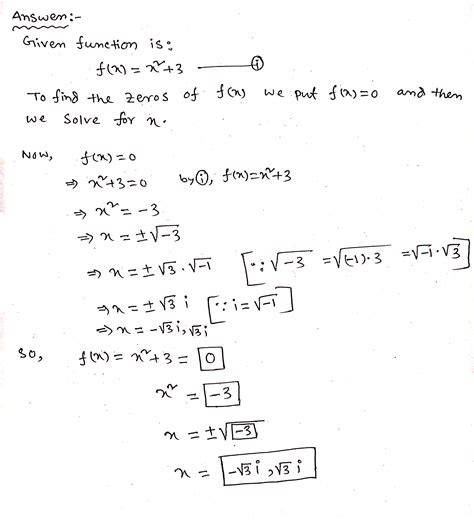 Answer:-
Given function is:
f(x) = x²+3 ——— ①
To find the zeros of f(x) we put f(x)=0 and then
we solve for x.
Now, f(x)=0
⇒ x²+3=0 by①, f(x)=x²+3
⇒ x² = -3
⇒ x = ±√-3
⇒ x = ±√3 . √-1 [∵ √-3 = √(-1)·3 = √-1·√3]
⇒ x = ±√3 i [∵ i=√-1]
⇒ x = -√3 i, √3 i
So, f(x) = x²+3 = 0
x² = -3
x = ±√-3
x = -√3 i, √3 i